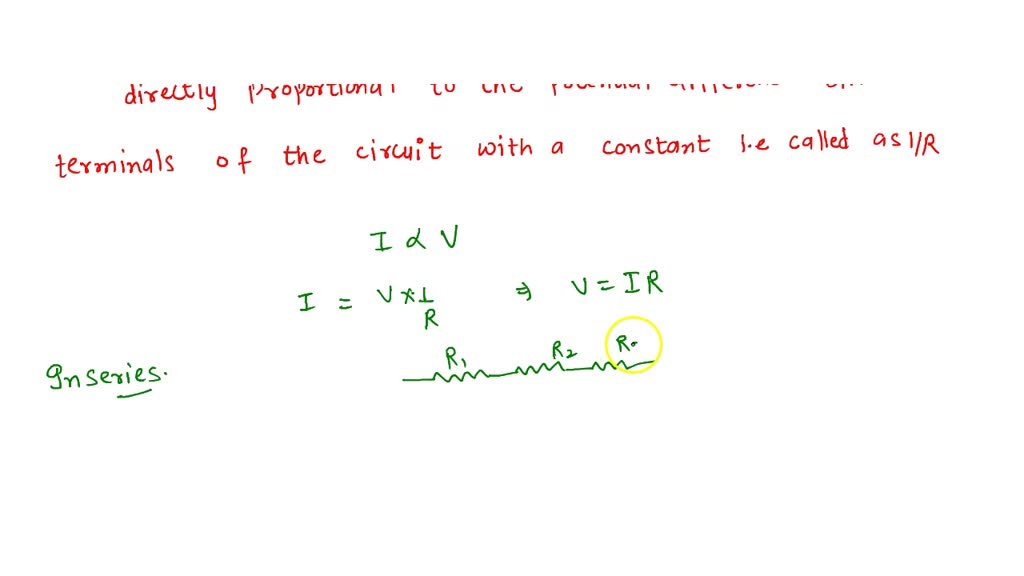 directly proportional to the potential
terminals of the circuit with a constant i.e called as 1/R
I ∝ V
I = V × 1/R ⇒ V = IR
R1 R2 R
Inseries.